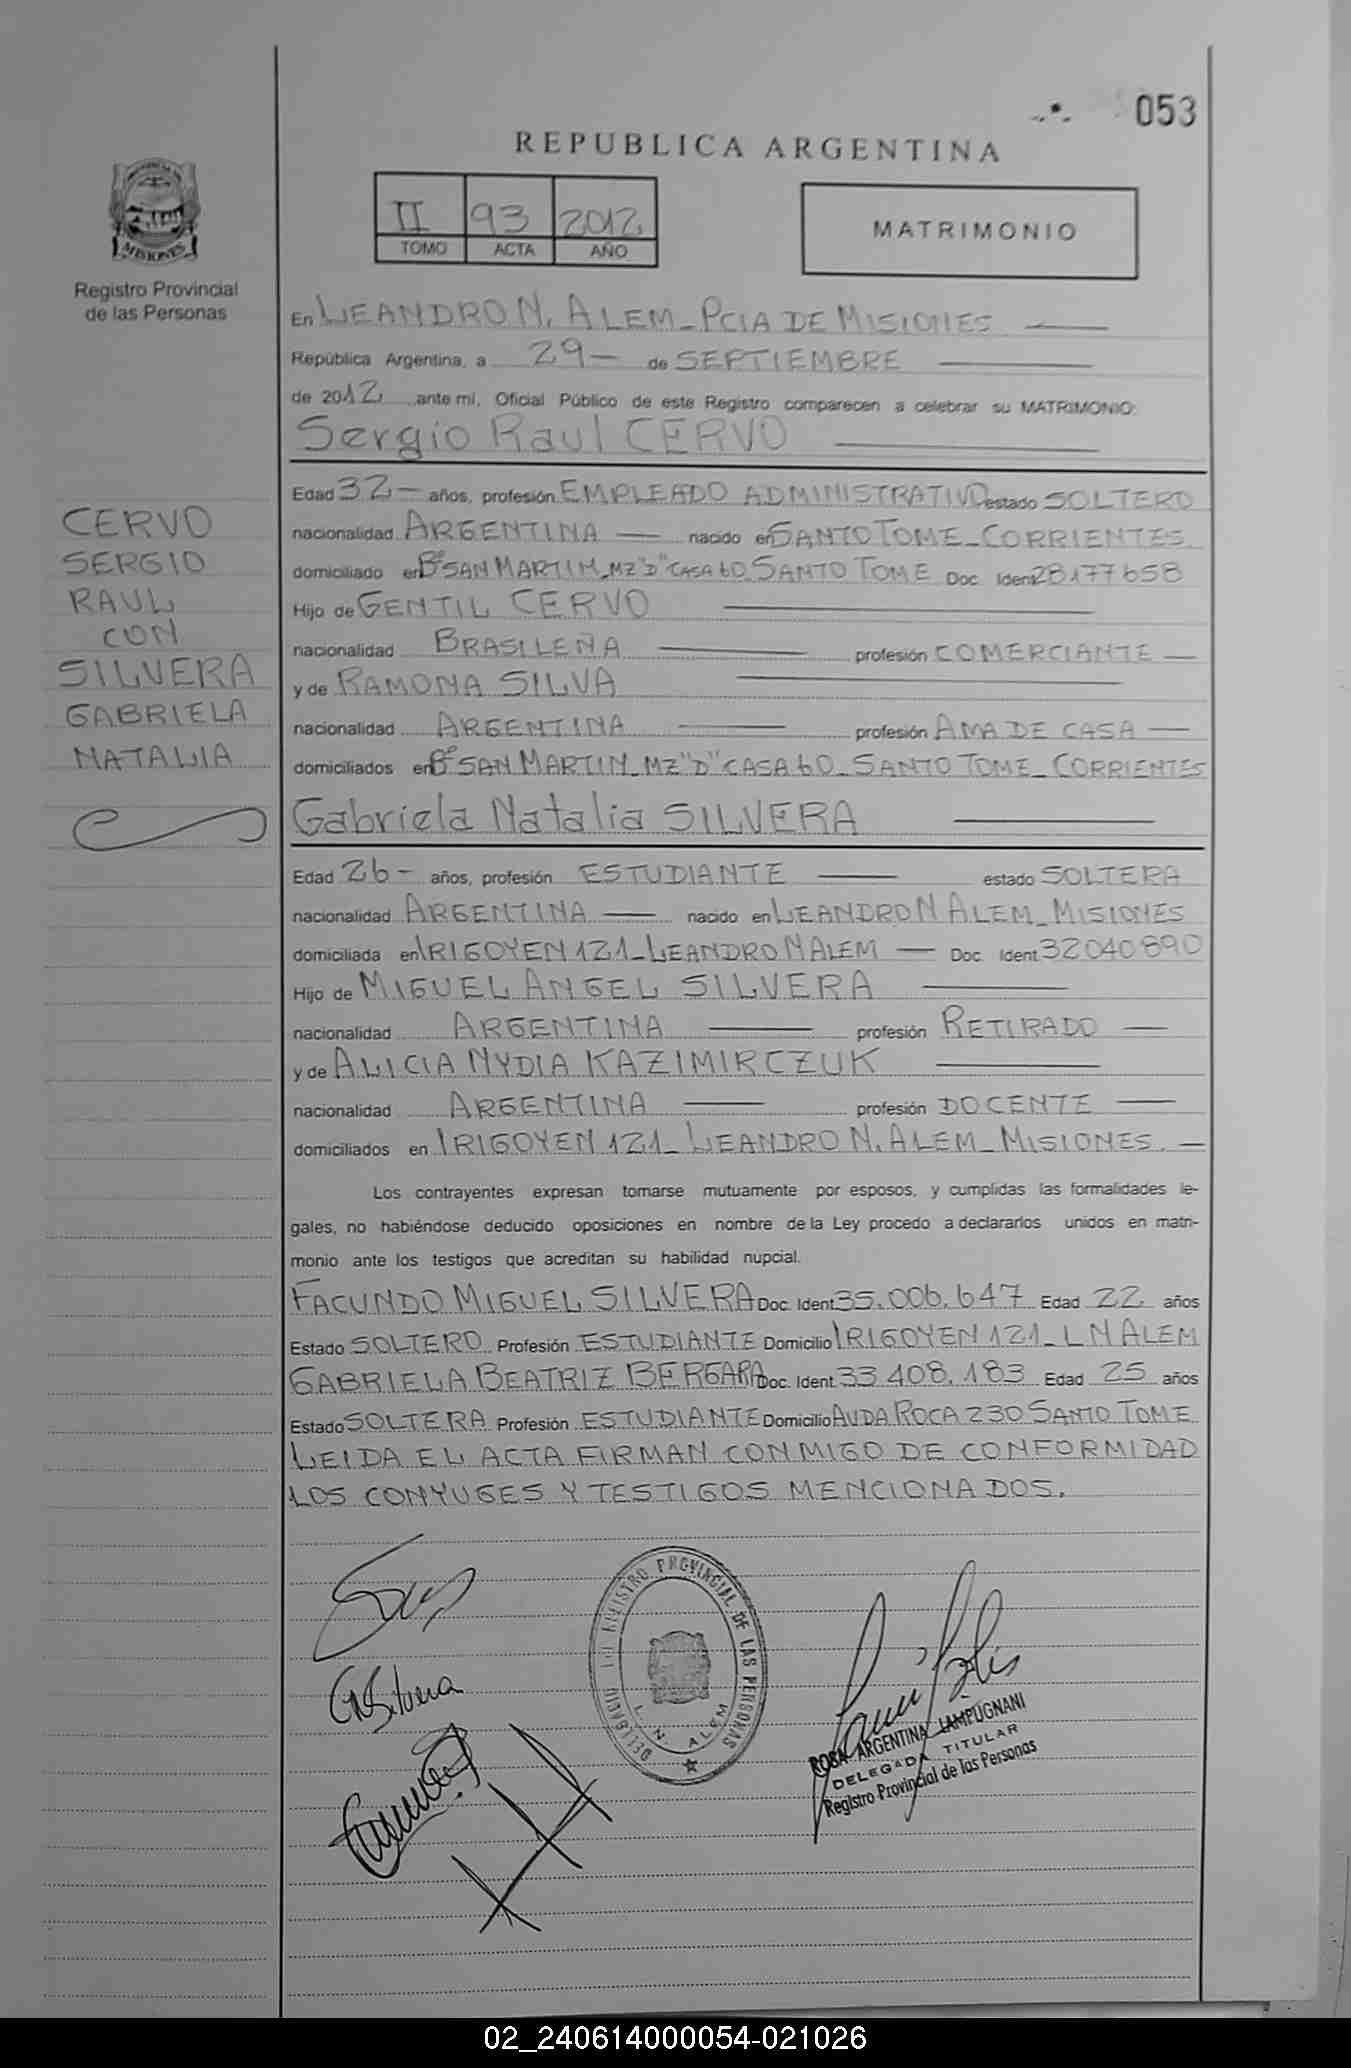 053
REPUBLICA ARGENTINA
II 93 2012
TOMO ACTA AÑO
MATRIMONIO
MISIONES
Registro Provincial
de las Personas
En LEANDRO N. ALEM - PCIA DE MISIONES
República Argentina, a 29 - de SEPTIEMBRE
de 2012 ante mí, Oficial Público de este Registro comparecen a celebrar su MATRIMONIO:
Sergio Raul CERVO
Edad 32 - años, profesión EMPLEADO ADMINISTRATIVO estado SOLTERO
nacionalidad ARGENTINA nacido en SANTO TOME - CORRIENTES
domiciliado en Bº SAN MARTIN - MZ "D" CASA 60. SANTO TOME Doc. Ident 28177658
Hijo de GENTIL CERVO
nacionalidad BRASILEÑA profesión COMERCIANTE
y de RAMONA SILVA
nacionalidad ARGENTINA profesión AMA DE CASA
domiciliados en Bº SAN MARTIN - MZ "D" CASA 60 - SANTO TOME - CORRIENTES
Gabriela Natalia SILVERA
Edad 26 - años, profesión ESTUDIANTE estado SOLTERA
nacionalidad ARGENTINA nacido en LEANDRO N ALEM - MISIONES
domiciliada en IRIGOYEN 121 - LEANDRO N ALEM Doc. Ident 32040890
Hijo de MIGUEL ANGEL SILVERA
nacionalidad ARGENTINA profesión RETIRADO
y de ALICIA NYDIA KAZIMIRCZUK
nacionalidad ARGENTINA profesión DOCENTE
domiciliados en IRIGOYEN 121 - LEANDRO N. ALEM - MISIONES.
Los contrayentes expresan tomarse mutuamente por esposos, y cumplidas las formalidades le-
gales, no habiéndose deducido oposiciones en nombre de la Ley procedo a declararlos unidos en matri-
monio ante los testigos que acreditan su habilidad nupcial.
FACUNDO MIGUEL SILVERA Doc. Ident 35.006.647 Edad 22 años
Estado SOLTERO Profesión ESTUDIANTE Domicilio IRIGOYEN 121 - L N ALEM
GABRIELA BEATRIZ BERGARA Doc. Ident. 33.408.183 Edad 25 años
Estado SOLTERA Profesión ESTUDIANTE Domicilio AVDA ROCA 230 SANTO TOME
LEIDA EL ACTA FIRMAN CONMIGO DE CONFORMIDAD
LOS CONYUGES Y TESTIGOS MENCIONADOS.
CERVO
SERGIO
RAUL
CON
SILVERA
GABRIELA
NATALIA
GNSilvera
DELEGACIO DEL REGISTRO PROVINCIAL DE LAS PERSONAS
L. N. ALEM
ROSA ARGENTINA LAMPUGNANI
DELEGADA TITULAR
Registro Provincial de las Personas
02_240614000054-021026